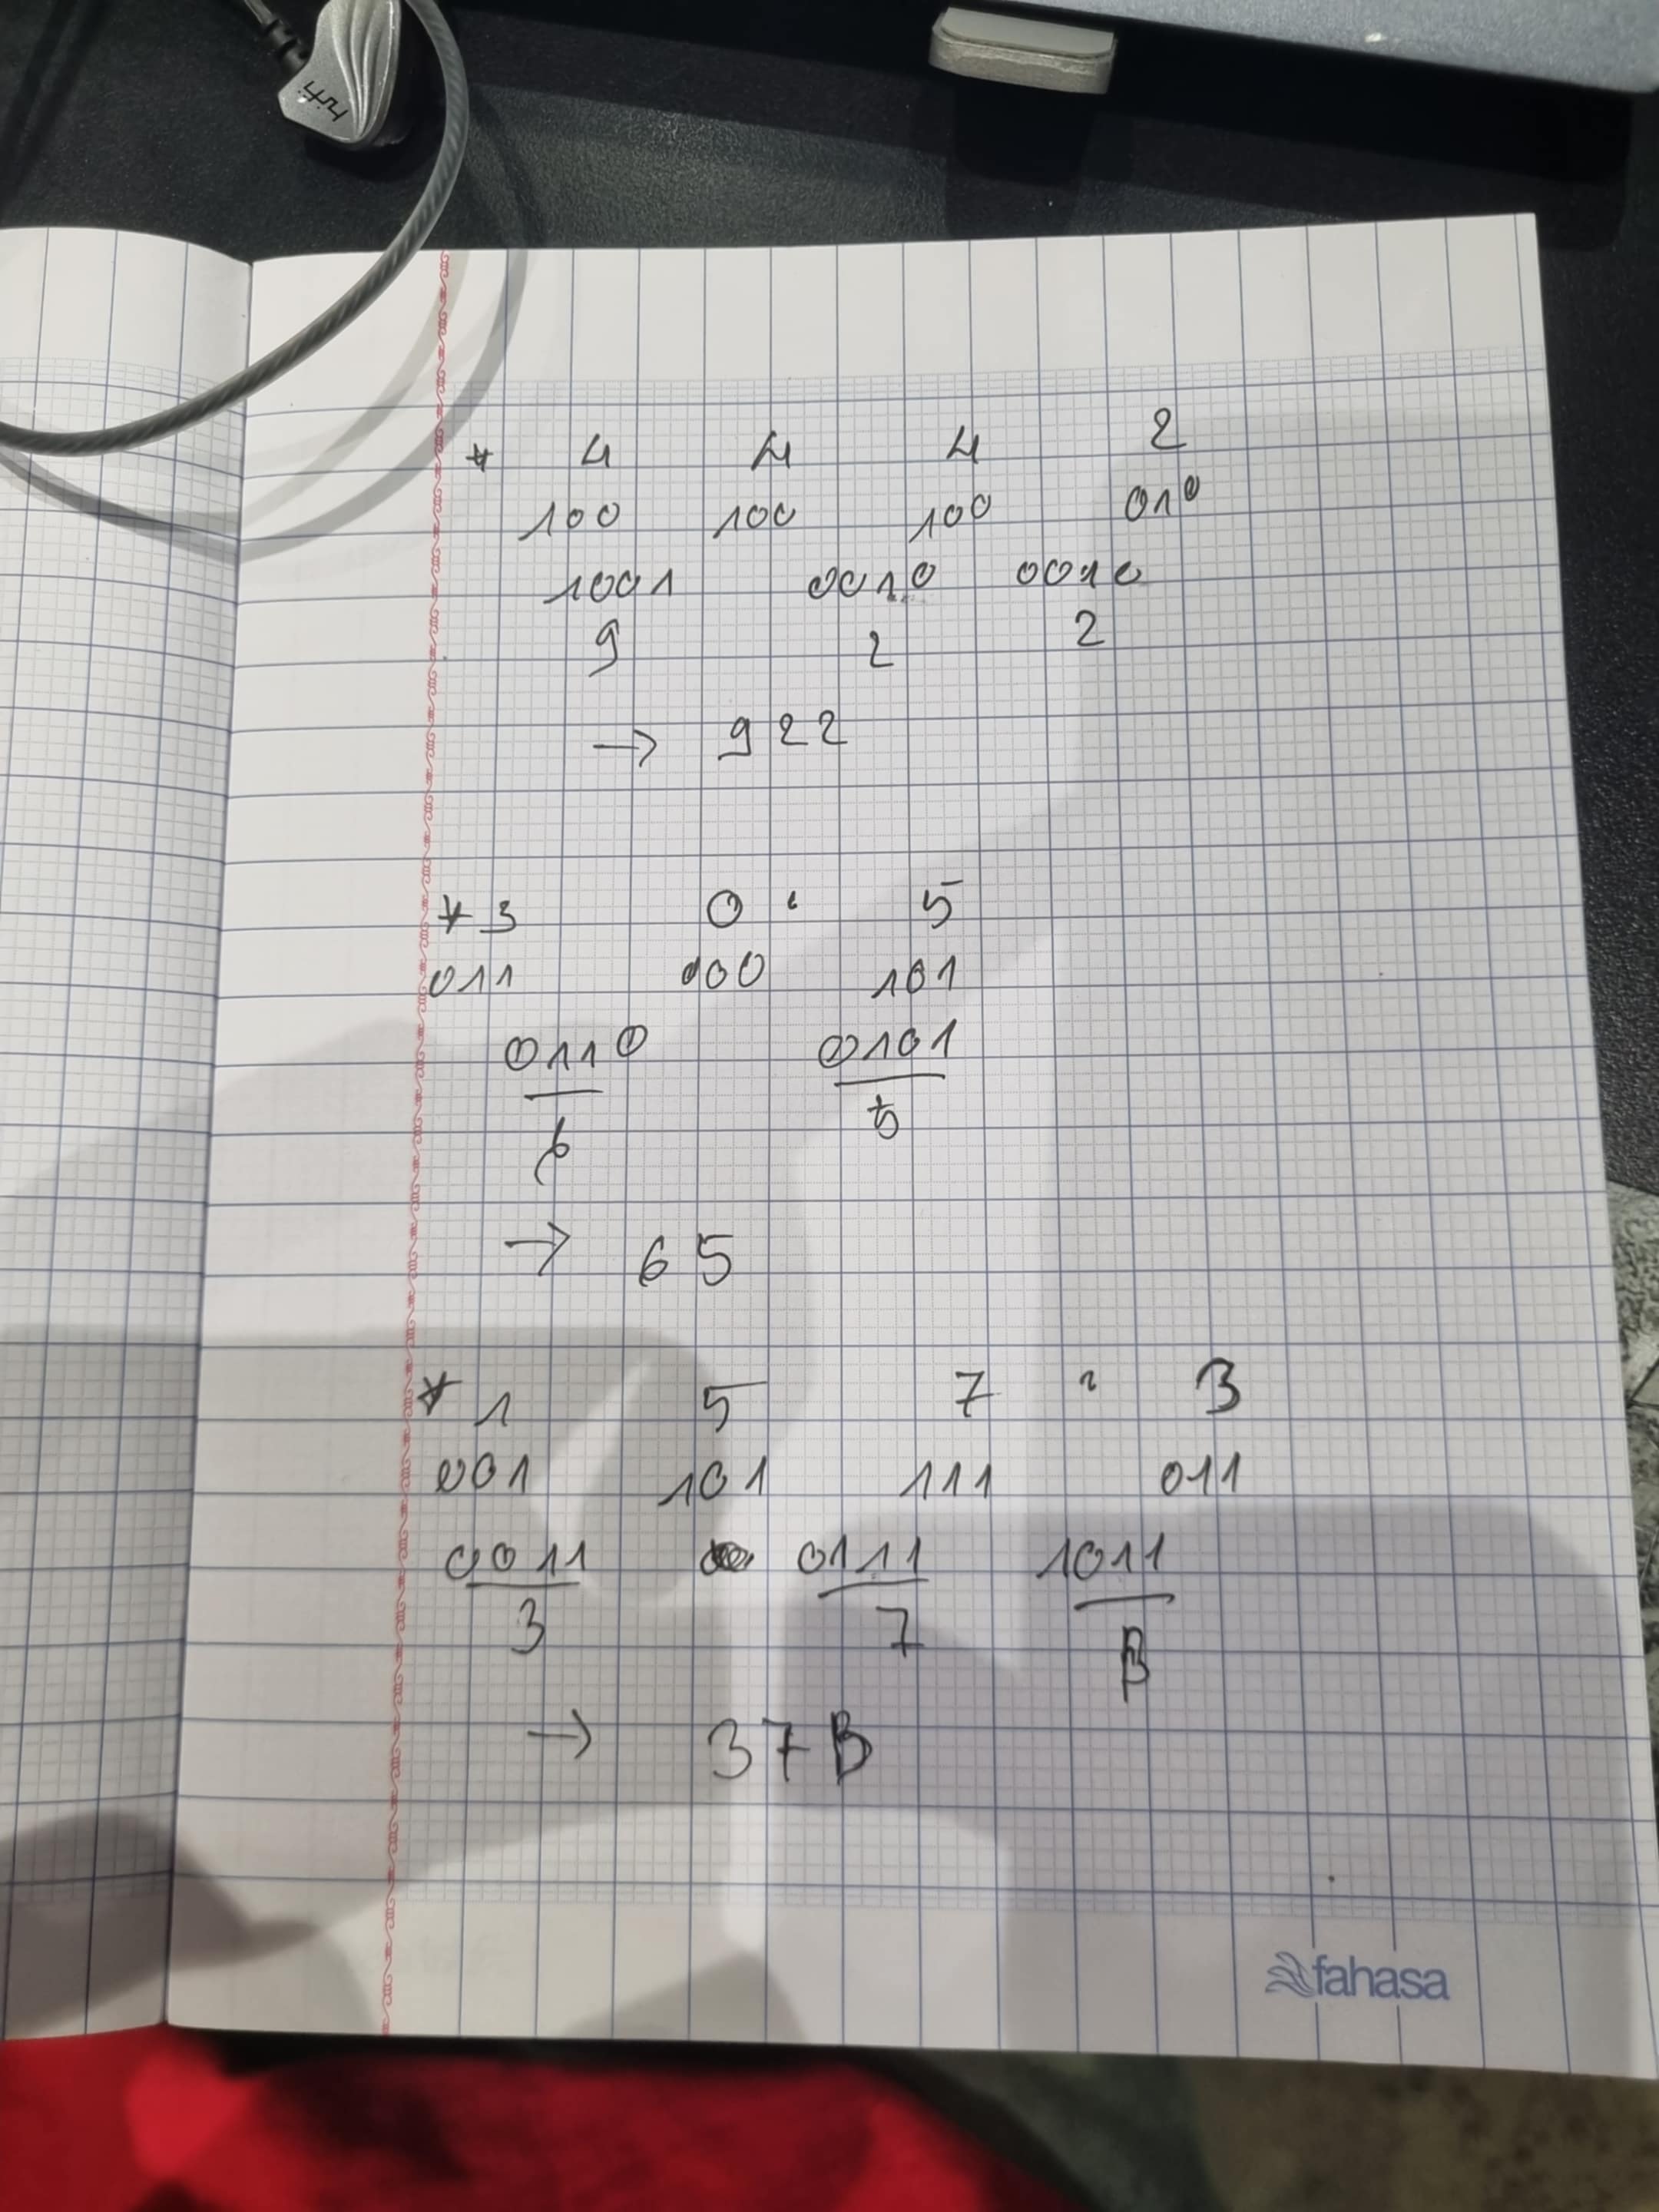 hifi
* 4 4 4 2
100 100 100 010
1001 0010 0010
9 2 2
→ 922
* 3 0 , 5
011 100 101
0110 0101
6 5
→ 65
* 1 5 7 , 3
001 101 111 011
0011 0111 1011
3 7 B
→ 37B
fahasa